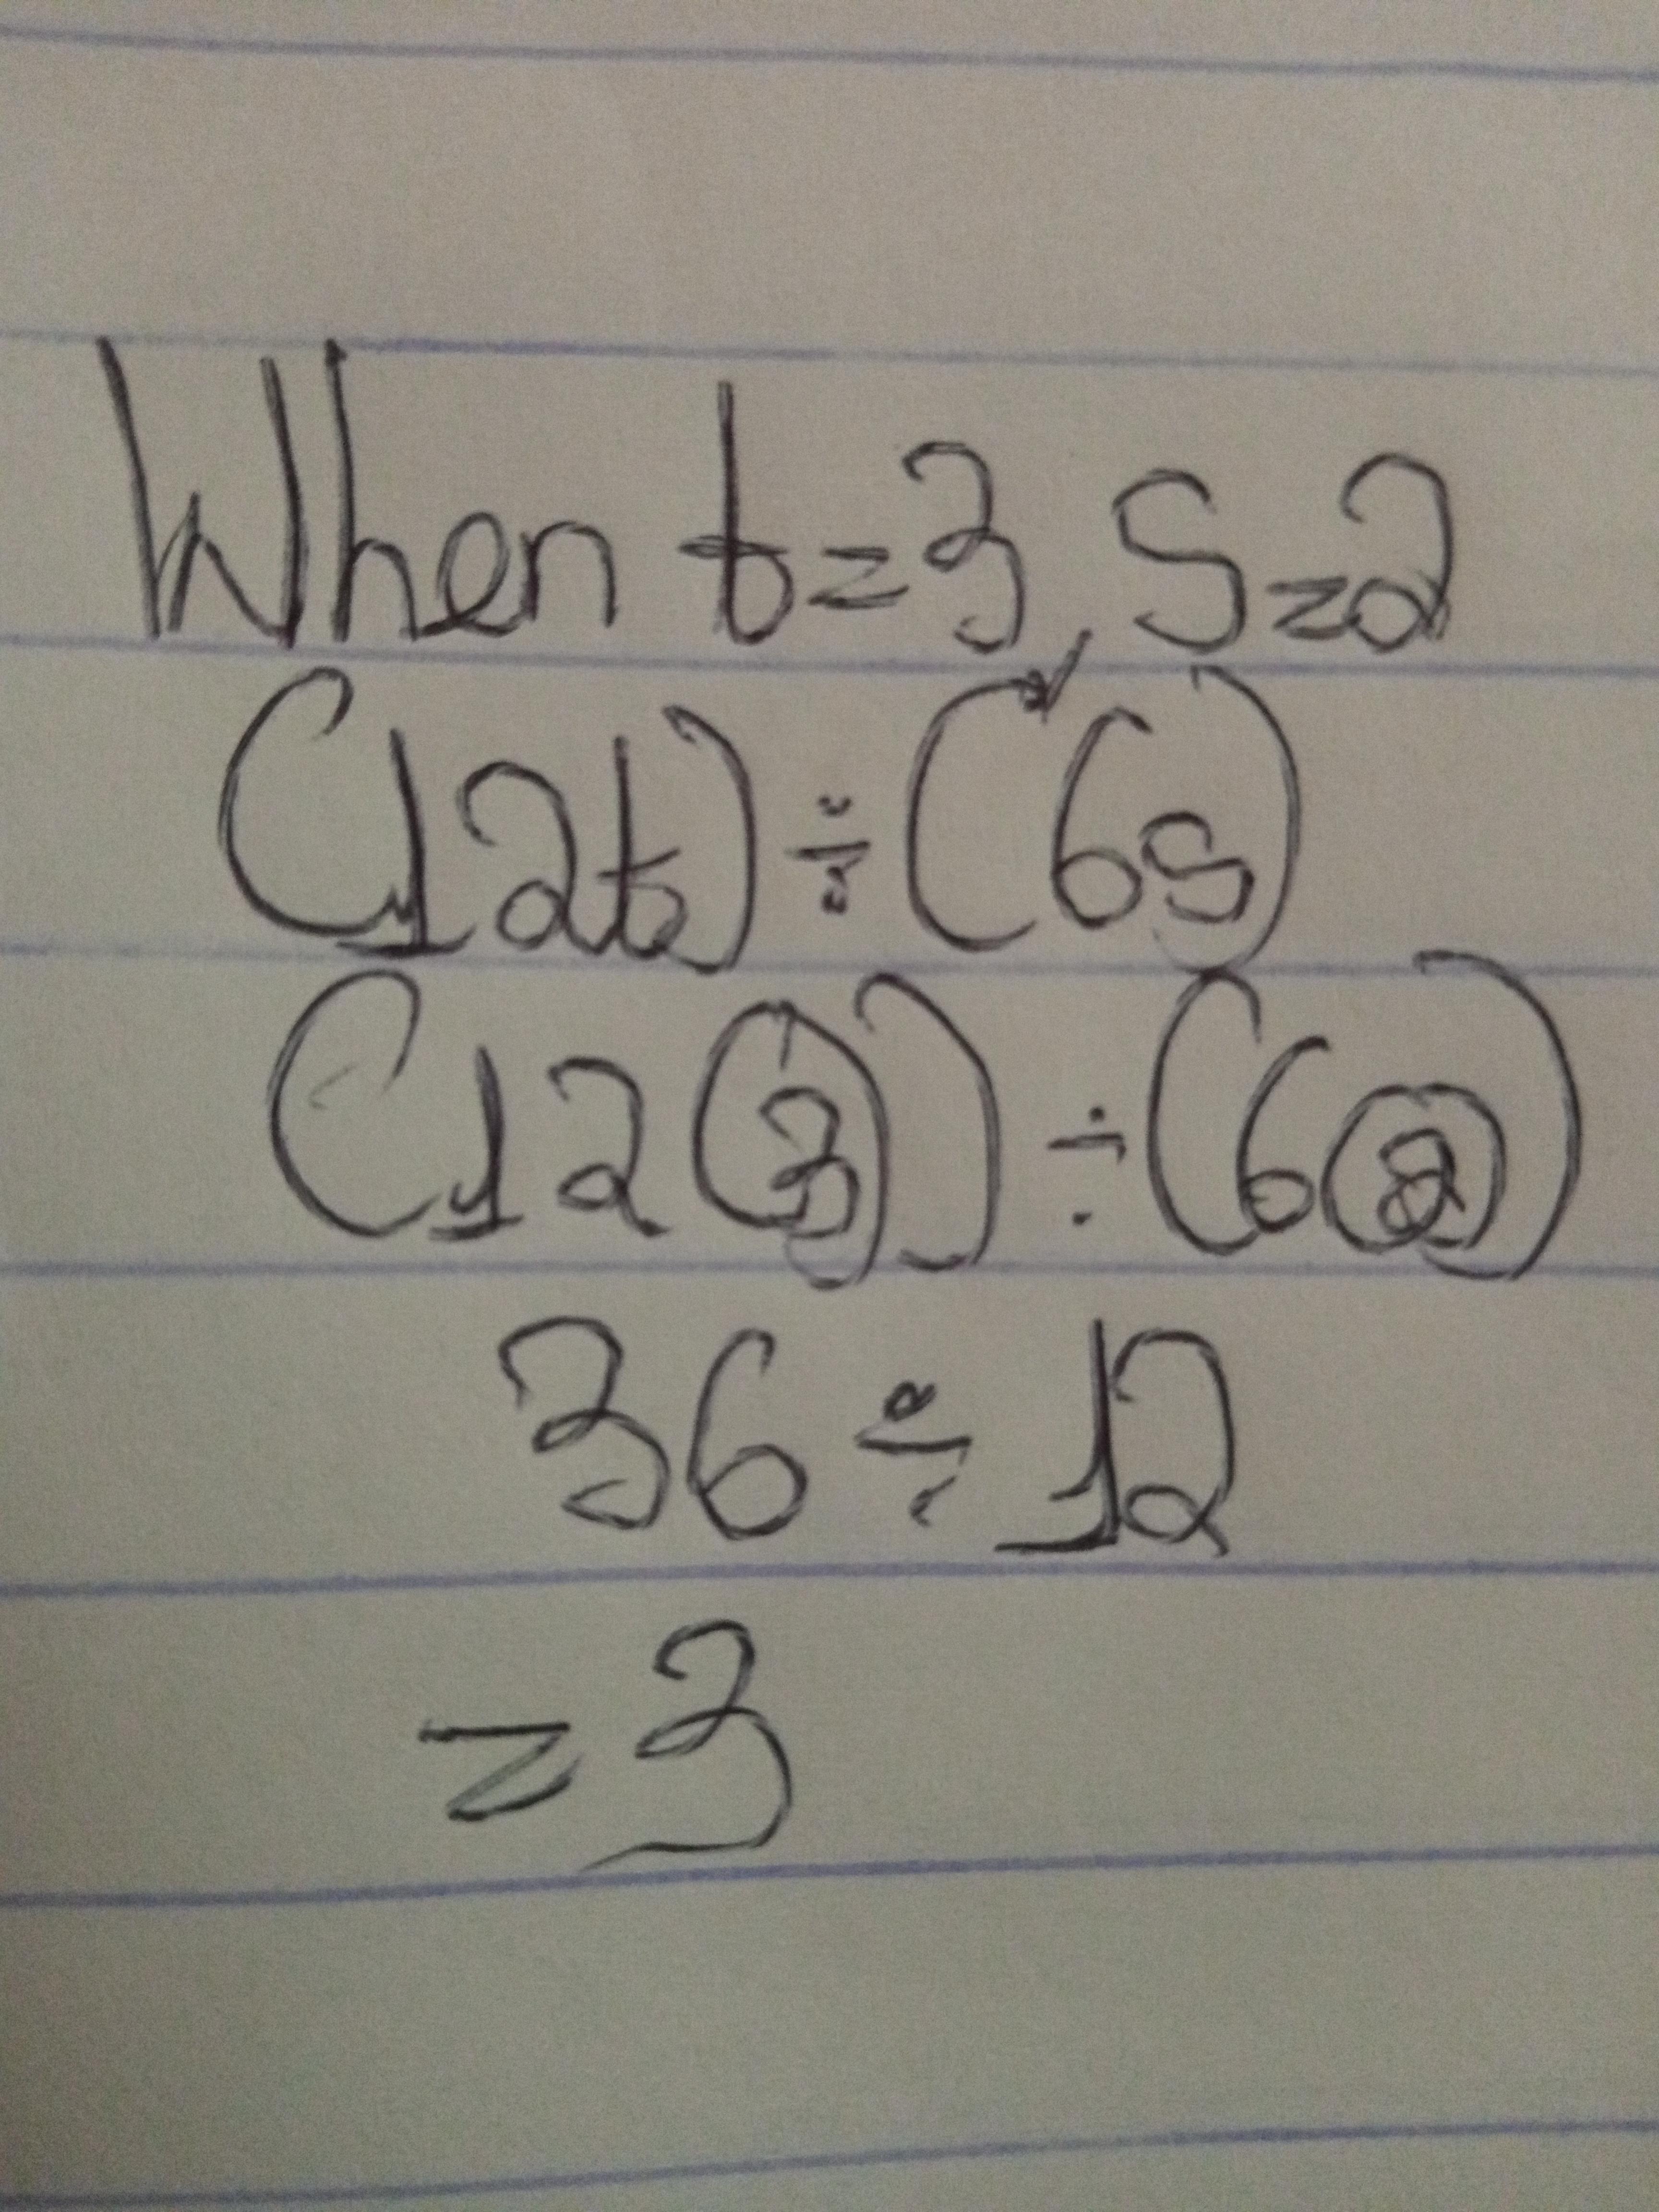 When t=3, s=2
(12t) ÷ (6s)
(12(3)) ÷ (6(2))
36 ÷ 12
=3